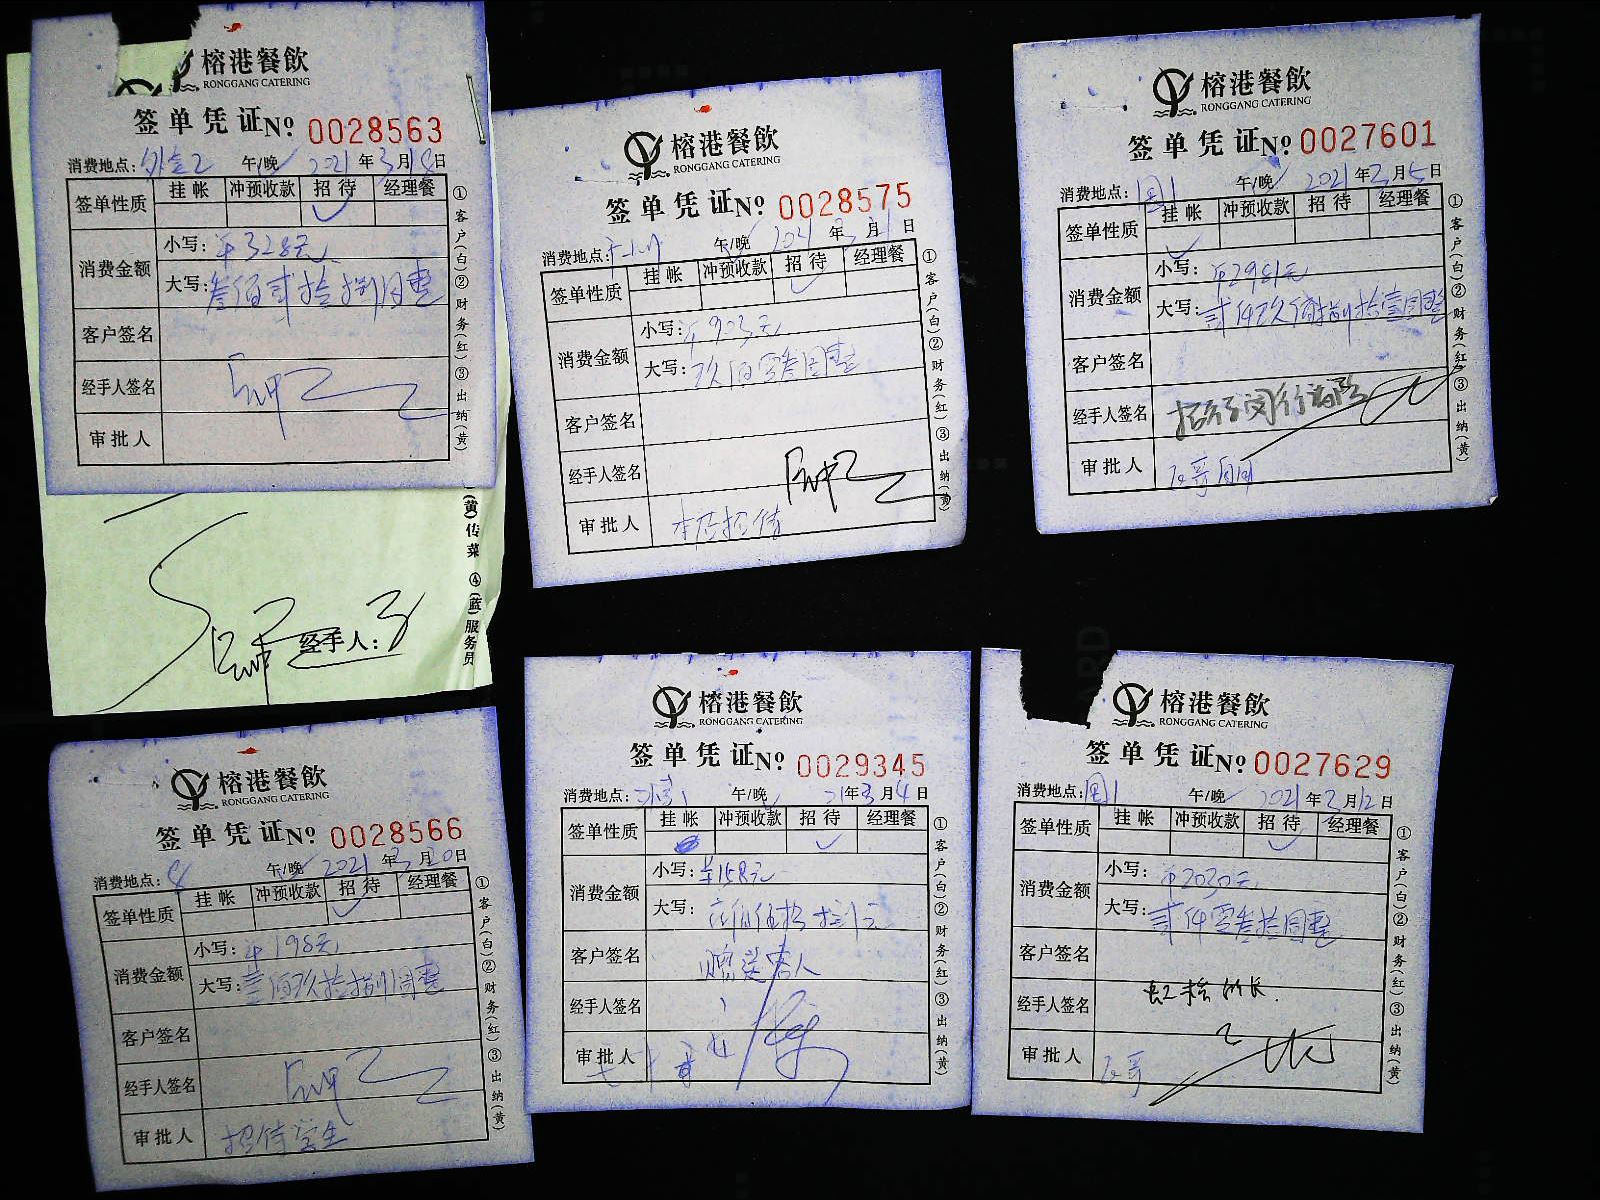 榕港餐飲
RONGGANG CATERING
签单凭证№ 0028563
消费地点: 午/晚 2021年3月18日
签单性质 挂帐 冲预收款 招待 经理餐
✓
消费金额 小写: ¥328元
大写: 叁佰贰拾捌圆整
客户签名
经手人签名
审批人
①客户(白)②财务(红)③出纳(黄)
(黄)传菜 ④(蓝)服务员
经手人:
榕港餐飲
RONGGANG CATERING
签单凭证№ 0028575
消费地点: 午/晚 2021年3月 日
签单性质 挂帐 冲预收款 招待 经理餐
✓
消费金额 小写: ¥903元
大写: 玖佰零叁圆整
客户签名
经手人签名
审批人 本店招待
①客户(白)②财务(红)③出纳(黄)
榕港餐飲
RONGGANG CATERING
签单凭证№ 0027601
消费地点: 午/晚 2021年3月5日
签单性质 挂帐 冲预收款 招待 经理餐
✓
消费金额 小写: ¥2981元
大写: 贰仟玖佰捌拾壹圆整
客户签名
经手人签名
审批人
①客户(白)②财务(红)③出纳(黄)
榕港餐飲
RONGGANG CATERING
签单凭证№ 0028566
消费地点: 午/晚 2021年3月20日
签单性质 挂帐 冲预收款 招待 经理餐
✓
消费金额 小写: ¥198元
大写: 壹佰玖拾捌圆整
客户签名
经手人签名
审批人 招待学生
①客户(白)②财务(红)③出纳(黄)
榕港餐飲
RONGGANG CATERING
签单凭证№ 0029345
消费地点: 午/晚 21年3月4日
签单性质 挂帐 冲预收款 招待 经理餐
✓
消费金额 小写: ¥158元
大写: 壹佰伍拾捌元
客户签名 赠送客人
经手人签名
审批人
①客户(白)②财务(红)③出纳(黄)
榕港餐飲
RONGGANG CATERING
签单凭证№ 0027629
消费地点: 午/晚 2021年3月12日
签单性质 挂帐 冲预收款 招待 经理餐
✓
消费金额 小写: ¥2030元
大写: 贰仟零叁拾圆整
客户签名
经手人签名
审批人
①客户(白)②财务(红)③出纳(黄)